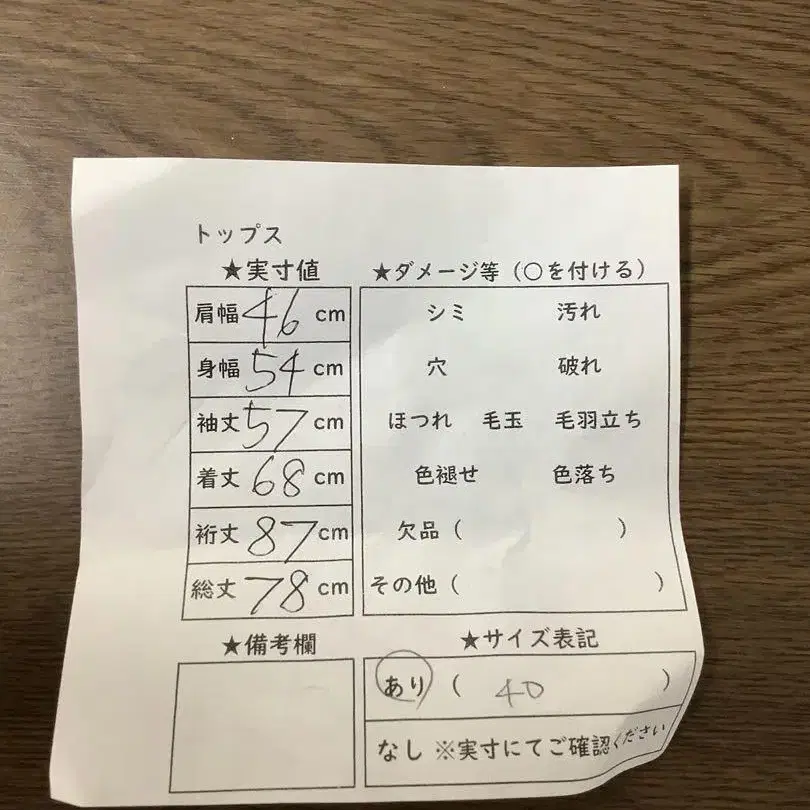 トップス
★実寸値
肩幅 46 cm
身幅 54 cm
袖丈 57 cm
着丈 68 cm
裄丈 87 cm
総丈 78 cm
★ダメージ等（○を付ける）
シミ 汚れ
穴 破れ
ほつれ 毛玉 毛羽立ち
色褪せ 色落ち
欠品（ ）
その他（ ）
★備考欄
★サイズ表記
あり（ 40 ）
なし ※実寸にてご確認ください